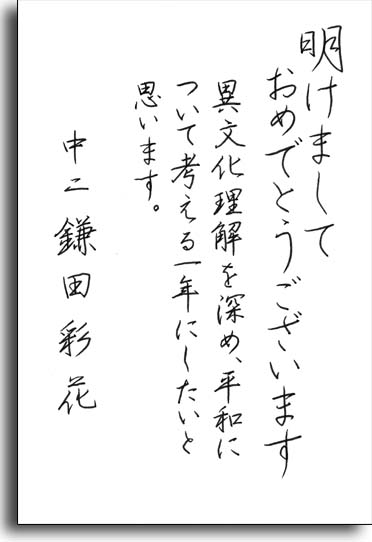 明けまして
おめでとうございます
異文化理解を深め、平和に
ついて考える一年にしたいと
思います。
中二 鎌田彩花